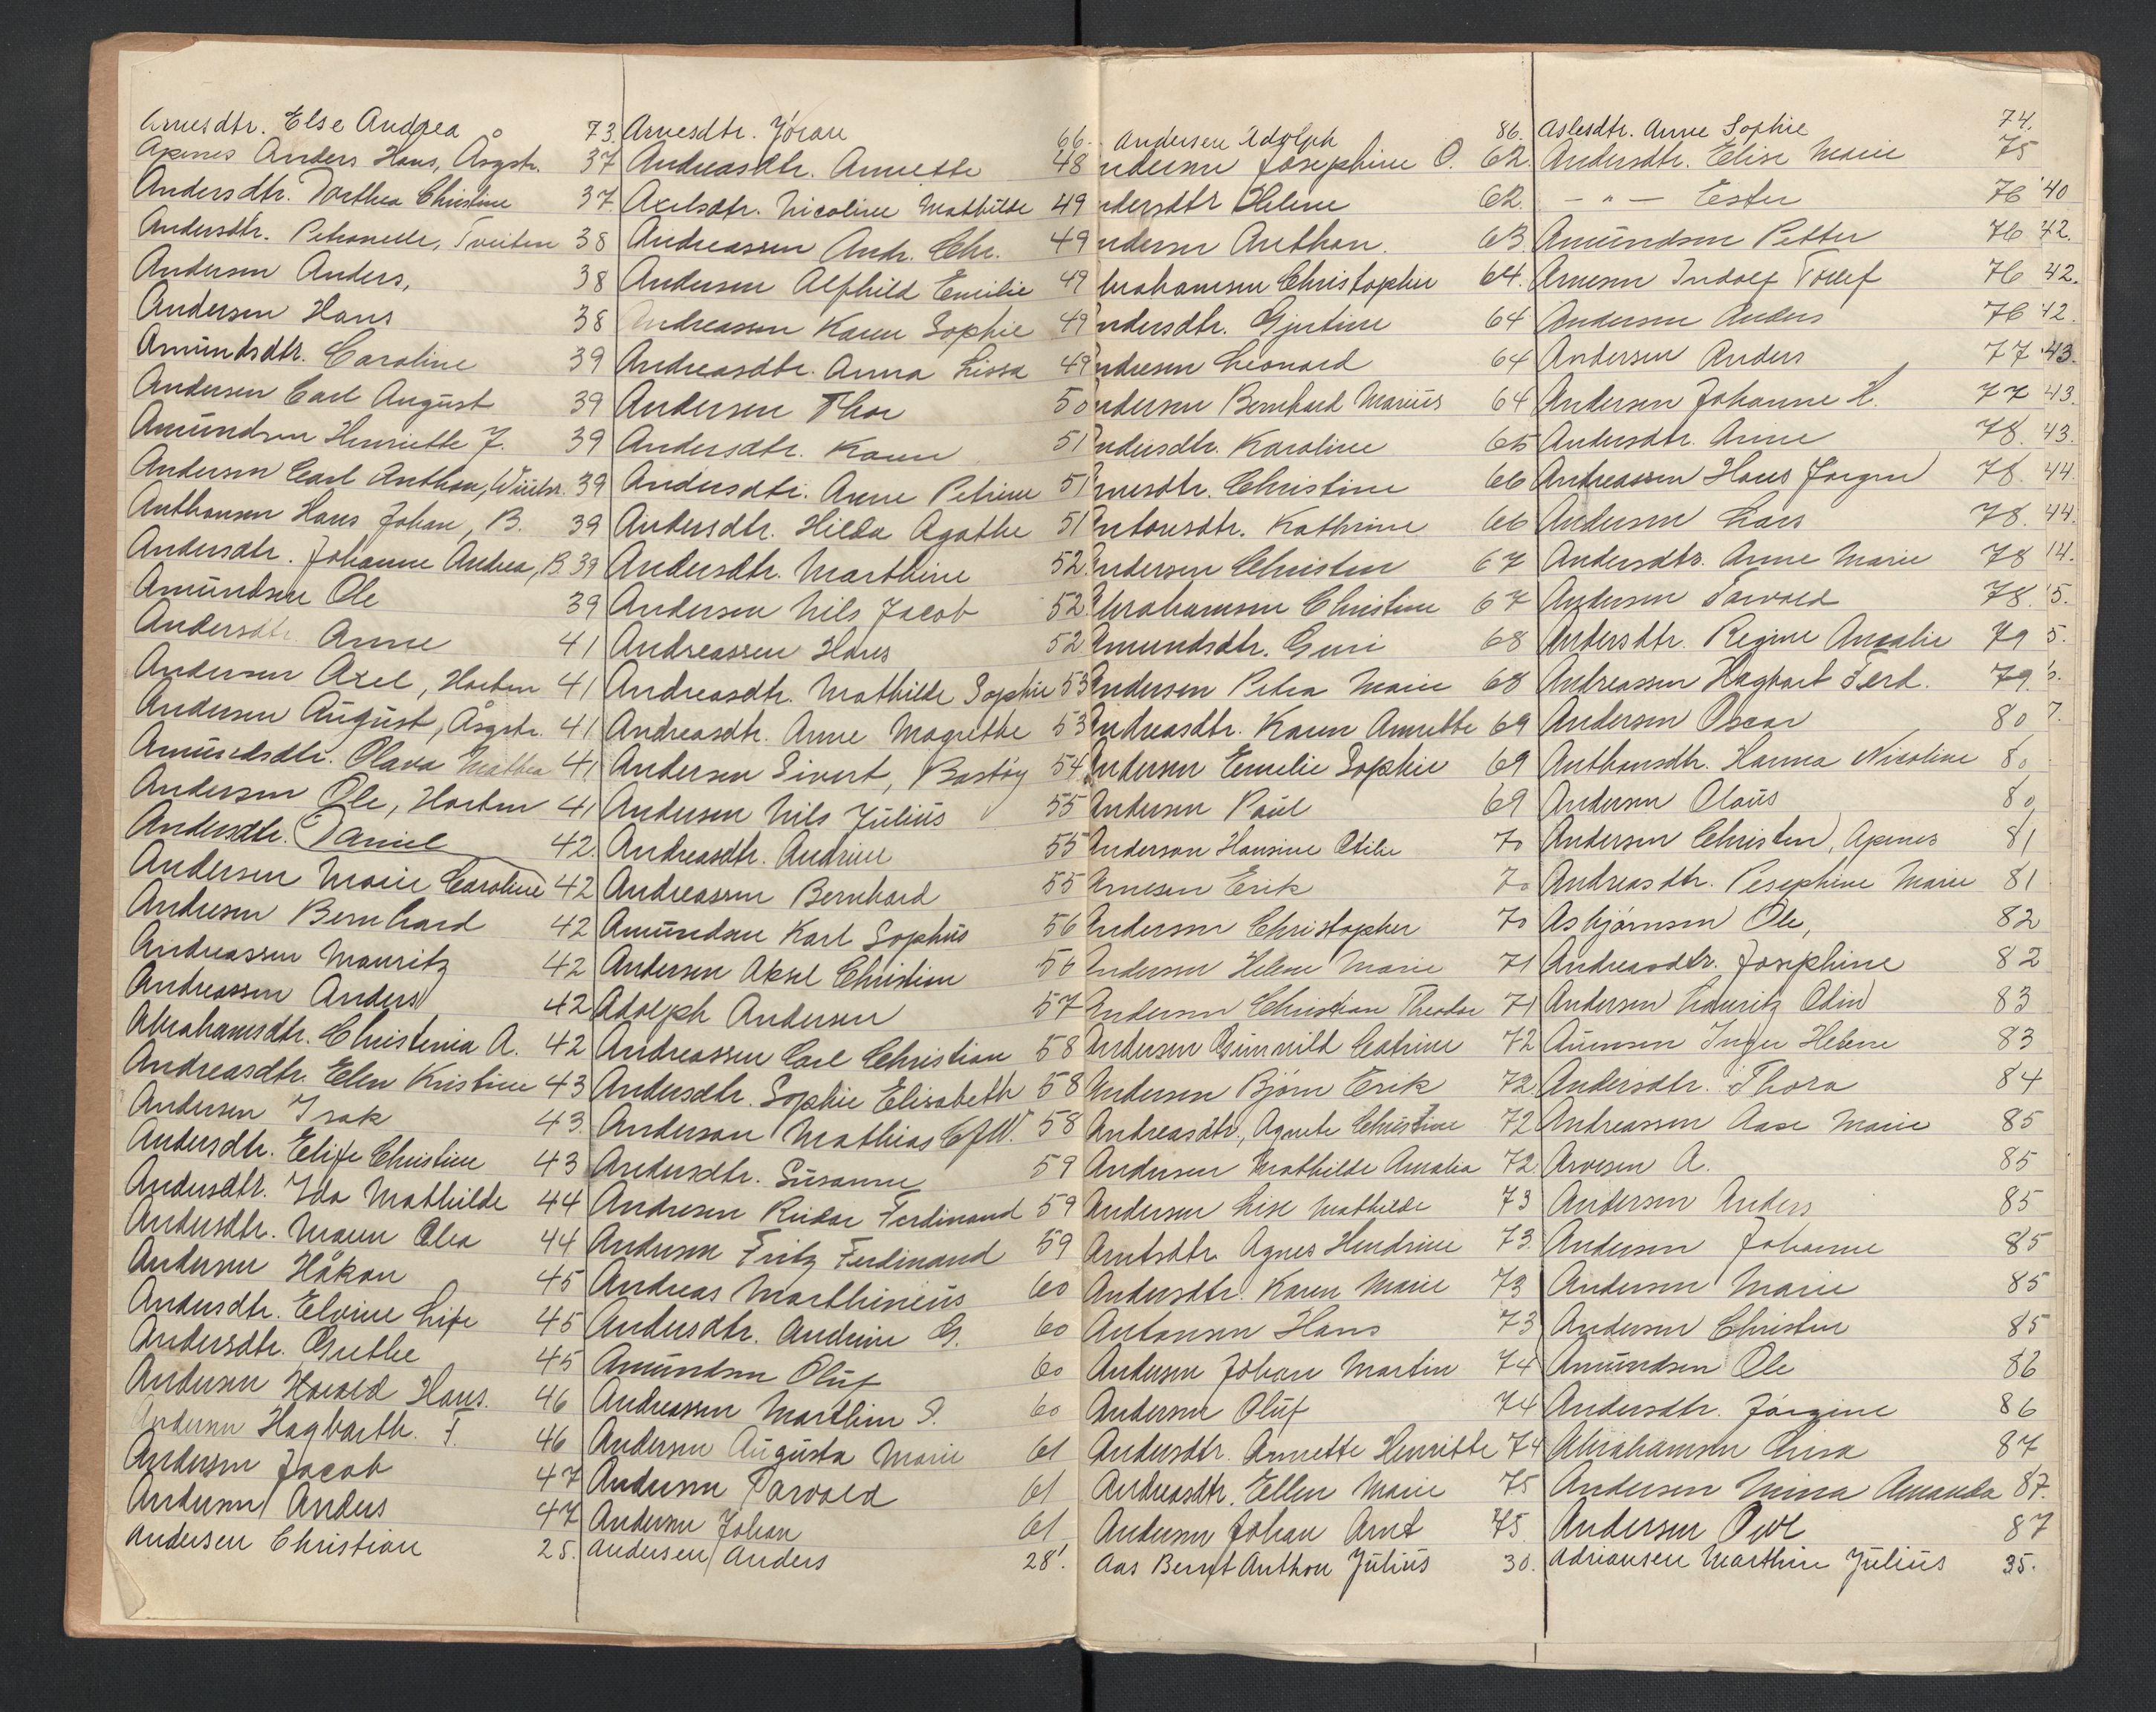 Arnesdtr. Else Andrea 73.
Apenes Anders Hans, Åsgstr. 37
Andersdtr. Dorthea Christine 37
Andersdtr. Petronelle, Tveiten 38
Andersen Anders, 38
Andersen Hans 38
Amundsdtr. Caroline 39
Andersen Carl August 39
Amundsen Henriette J. 39
Andersen Carl Anthon, 39
Anthonsen Hans Johan, B. 39
Andersdtr. Johanne Andrea, B. 39
Amundsen Ole 39
Andersdtr. Anne 41
Andersen Axel, Horten 41
Andersen August, Åsgstr. 41
Amundsdtr. Olava Mathea 41
Andersen Ole, Horten 41
Andersdtr. Daniel 42.
Andersen Marie Caroline 42
Andresen Bernhard 42
Andreassen Mauritz 42
Andreassen Anders 42
Abrahamsdtr. Christenia A. 42
Andreasdtr. Elen Kristine 43
Andersen Isak 43.
Andersdtr. Elise Christine 43
Andersdtr. Ida Mathilde 44
Andersdtr. Maren Olea 44
Andersen Håkon 45
Andersdtr. Elvine Lise 45
Andersdtr. Grethe 45
Andersen Harald Hans. 46
Andersen Hagbarth. F. 46
Andersen Jacob 47
Andersen Anders 47
Andersen Christian 25.
Arnesdtr. Jöran 66.
Andreasdtr. Annette 48
Axelsdtr. Nicoline Mathilde 49
Andreassen Andr. Chr. 49
Andersen Alfhild Emilie 49
Andreassen Karen Sophie 49
Andreasdtr. Anna Lissa 49
Andersen Thor 50
Andersdtr. Karen 51
Andersdtr. Anne Petrine 51
Andersdtr. Hilda Agathe 51
Andersdtr. Marthine 52.
Andersen Nils Jacob 52
Andreassen Hans 52
Andreasdtr. Mathilde Sophie 53
Andreasdtr. Anne Magrethe 53
Andersen Sivert, Bastøy 54
Andersen Nils Julius 55
Andreasdtr. Andrine 55
Andreassen Bernhard 55
Amundsen Karl Sophus 56
Andersen Aksel Christian 56
Adolph Andersen 57
Andreassen Carl Christian 58
Andersdtr. Sophie Elisabeth 58
Anderson Mathias 58
Andersdtr. Susanne 59
Andresen Reidar Ferdinand 59
Andersen Fritz Ferdinand 59
Andreas Marthineus 60
Andersdtr. Andrine G. 60
Amundsen Oluf 60
Andreassen Marthin S. 60
Andersen Augusta Marie 61
Andersen Torvald 61
Andersen Johan 61
Andersen Anders 28.
Andersen Adolph 86.
ndersen Josephine O. 62.
ndersdtr Helene 62.
ndersen Anthon. 63
brahamsen Christopher 64.
ndersdtr. Gjertine 64
ndresen Leonard 64
ndersen Bernhard Marius 64
ndersdtr. Karoline 65
rnesdtr. Christine 66
Antonsdtr. Kathrine 66
Andersen Christen 67
Abrahamsen Christine 67
Amundsdtr. Guri 68
Andersen Petra Marie 68
Andreasdtr. Karen Annette 69
Andersen Emelie Sophie 69
Andersen Paul 69
Anderson Hansine Otilie 70
Arnesen Erik 70
Andersen Christopher 70
Andersen Helene Marie 71
Andersen Christian Theodor 71
Andersen Gunnild Catrine 72
Andersen Bjørn Erik 72
Andreasdtr., Agnete Christine 72
Andersen Mathilde Amalia 72
Andersen Lise Mathilde 73
Arntsdtr. Agnes Hendrine 73.
Andersdtr. Karen Marie 73
Antonsen Hans 73
Andersen Johan Martin 74
Andersen Oluf 74
Andersdtr. Annette Henriette 74
Andreasdtr. Ellen Marie 75
Andersen Johan Arnt 75
Aas Bernt Anthon Julius 30.
Aslesdtr. Anne Sophie 74.
Andersdtr. Elise Marie 75
— " — Ester 76 40
Amundsen Petter 76 42.
Arnesen Indolf Tollef 76 42.
Andersen Anders 76 42.
Andersen Anders 77 43.
Andersen Johanne H. 77 43.
Andersdtr. Anne 78. 43.
Andreassen Hans Jørgen 78. 44.
Andersen Lars 78. 44.
Andersdtr. Anne Marie 78 14.
Andersen Torvald 78. 5.
Andersdtr. Regine Amalie 79 5.
Andreassen Hagbart Ferd. 79.
Andersen Oscar 80 7.
Anthonsdtr. Hanna Nicoline 80
Andersen Olaus 80
Andersen Christen, Apenes 81
Andreasdtr. Pesephine Marie 81
Asbjørnsen Ole, 82
Andreasdtr. Josephine 82
Andersen Lauritz Odin 83
Aunnsen Inger Helene 83
Andersdtr. Thora 84
Andreassen Aase Marie 85
Arvesen A. 85
Andersen Anders 85
Andersen Johanne 85
Andersen Marie 85
Andersen Christen 85
Amundsen Ole 86
Andersdtr. Jørgine 86
Abrahamsen Lina 87
Andersen Minna Amanda 87.
Andersen 87
Adriansen Marthin Julius 35.